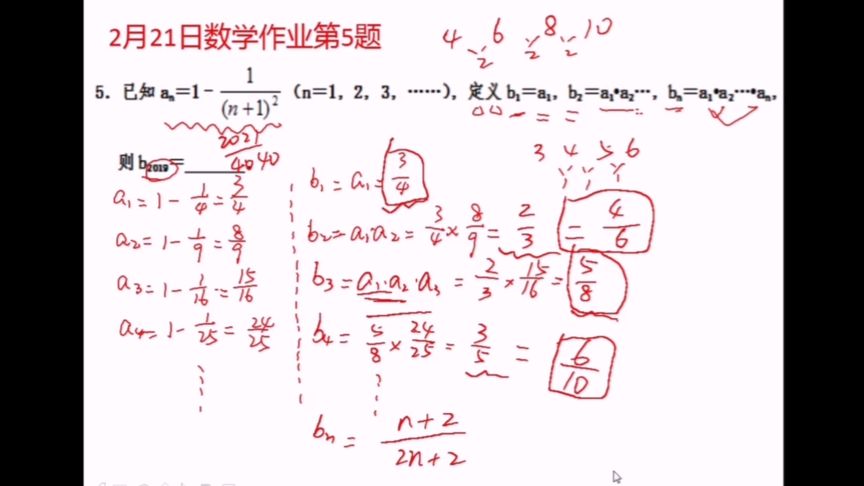 2月21日数学作业第5题
4 6 8 10
2 2 2
5. 已知 aₙ=1- 1/(n+1)² (n=1, 2, 3, ……), 定义 b₁=a₁, b₂=a₁•a₂…, bₙ=a₁•a₂…•aₙ,
则 b₂₀₁₉=______.
2021/4040
3 4 5 6
1 1 1
a₁= 1- 1/4 = 3/4
a₂= 1- 1/9 = 8/9
a₃= 1- 1/16 = 15/16
a₄= 1- 1/25 = 24/25
b₁ = a₁ = 3/4
b₂= a₁.a₂ = 3/4 × 8/9 = 2/3 = 4/6
b₃ = a₁.a₂.a₃ = 2/3 × 15/16 = 5/8
b₄ = 5/8 × 24/25 = 3/5 = 6/10
bₙ = n+2/2n+2